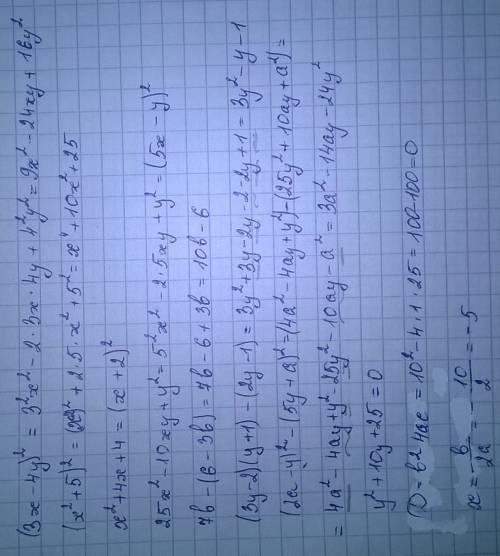 (3x - 4y)² = 3²x² - 2·3x·4y + 4²y² = 9x² - 24xy + 16y²
(x² + 5)² = (x²)² + 2·5·x² + 5² = x⁴ + 10x² + 25
x² + 4x + 4 = (x + 2)²
25x² - 10xy + y² = 5²x² - 2·5xy + y² = (5x - y)²
7b - (6 - 3b) = 7b - 6 + 3b = 10b - 6
(3y - 2)(y + 1) - (2y - 1) = 3y² + 3y - 2y - 2 - 2y + 1 = 3y² - y - 1
(2a - y)² - (5y + a)² = (4a² - 4ay + y²) - (25y² + 10ay + a²) =
= 4a² - 4ay + y² - 25y² - 10ay - a² = 3a² - 14ay - 24y²
y² + 10y + 25 = 0
D = b2 4ac = 10² - 4·1·25 = 100 - 100 = 0
x = - b/2a = - 10/2 = -5